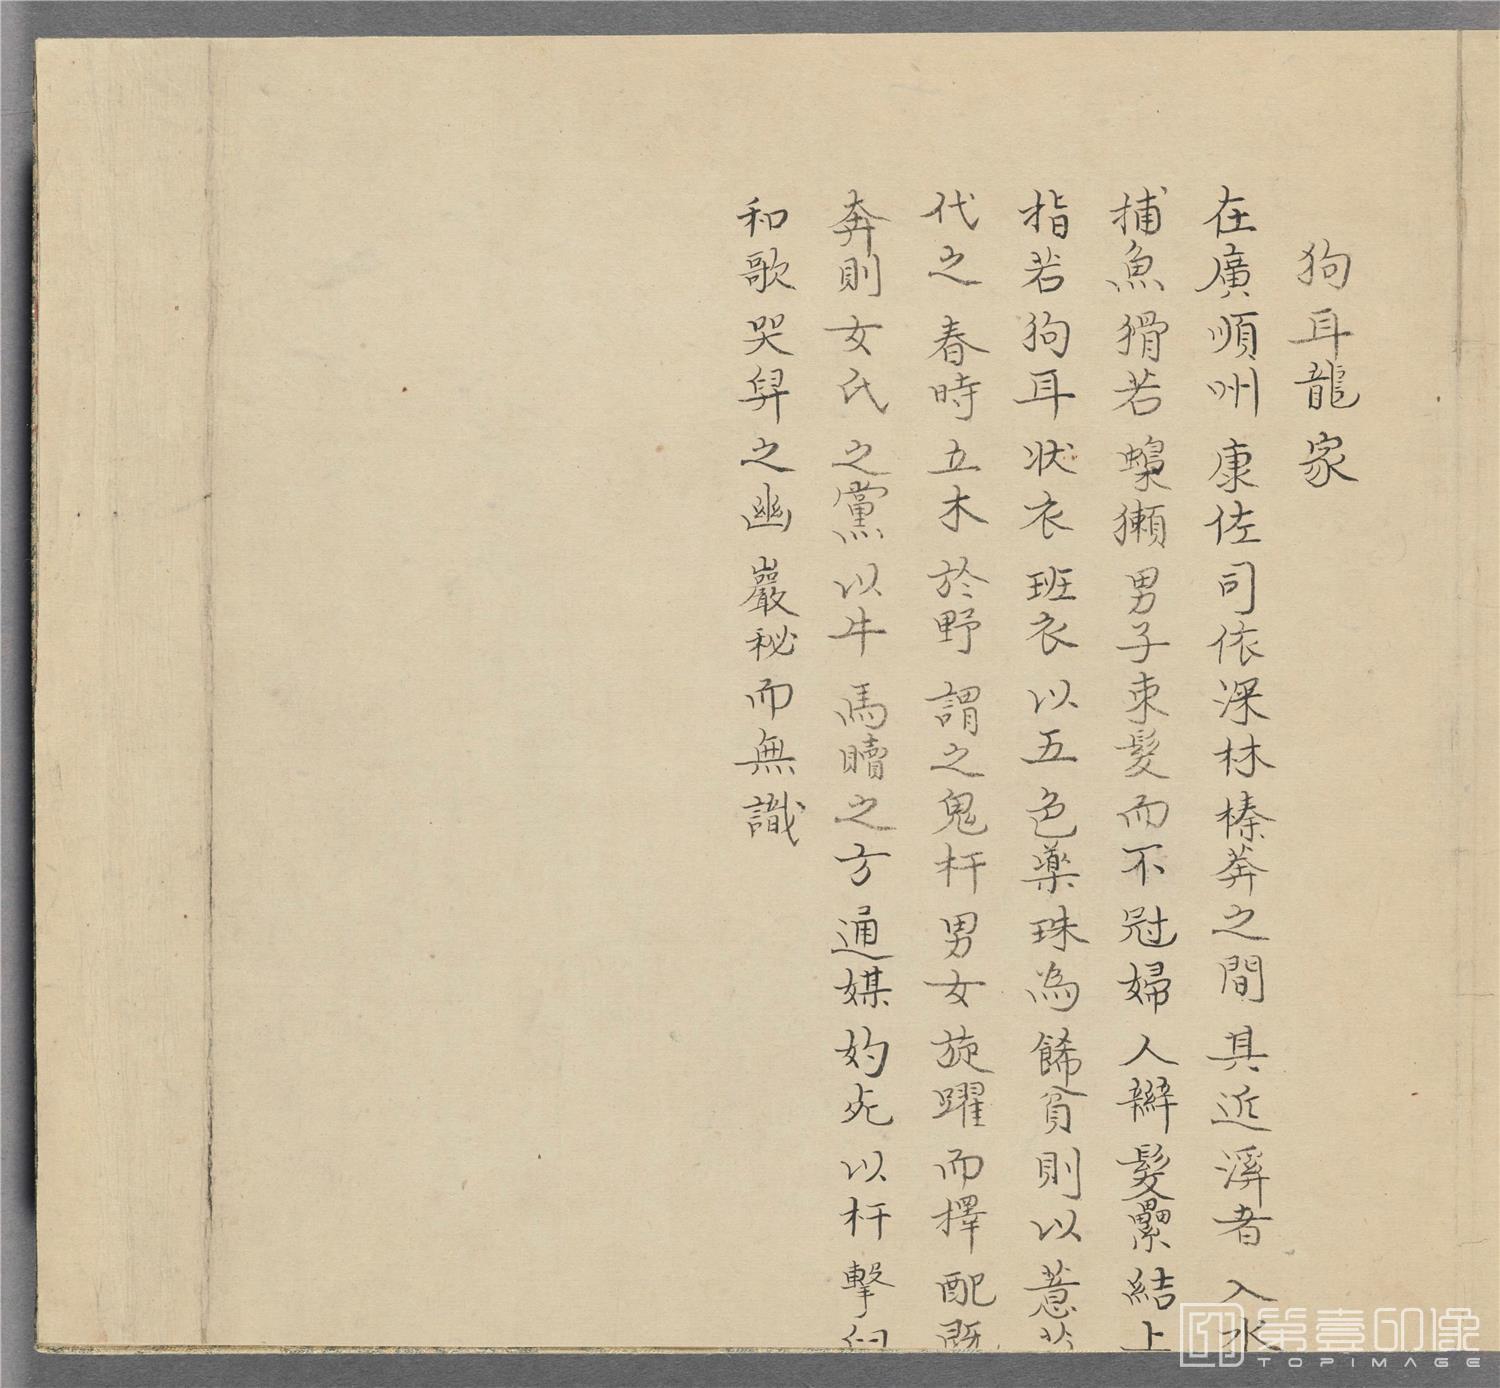 狗耳龍家
在廣順州康佐司依深林榛莽之間其近溪者入水
捕魚猾若蠏獺男子束髮而不冠婦人辮髮纍結上
指若狗耳狀衣班衣以五色藥珠為餙貧則以薏苡
代之春時立木於野謂之鬼杆男女旋躍而擇配既
奔則女氏之黨以牛馬贖之方通媒妁死以杆擊臼
和歌哭舁之幽巖秘而無識
第壹印像
TOPIMAGE